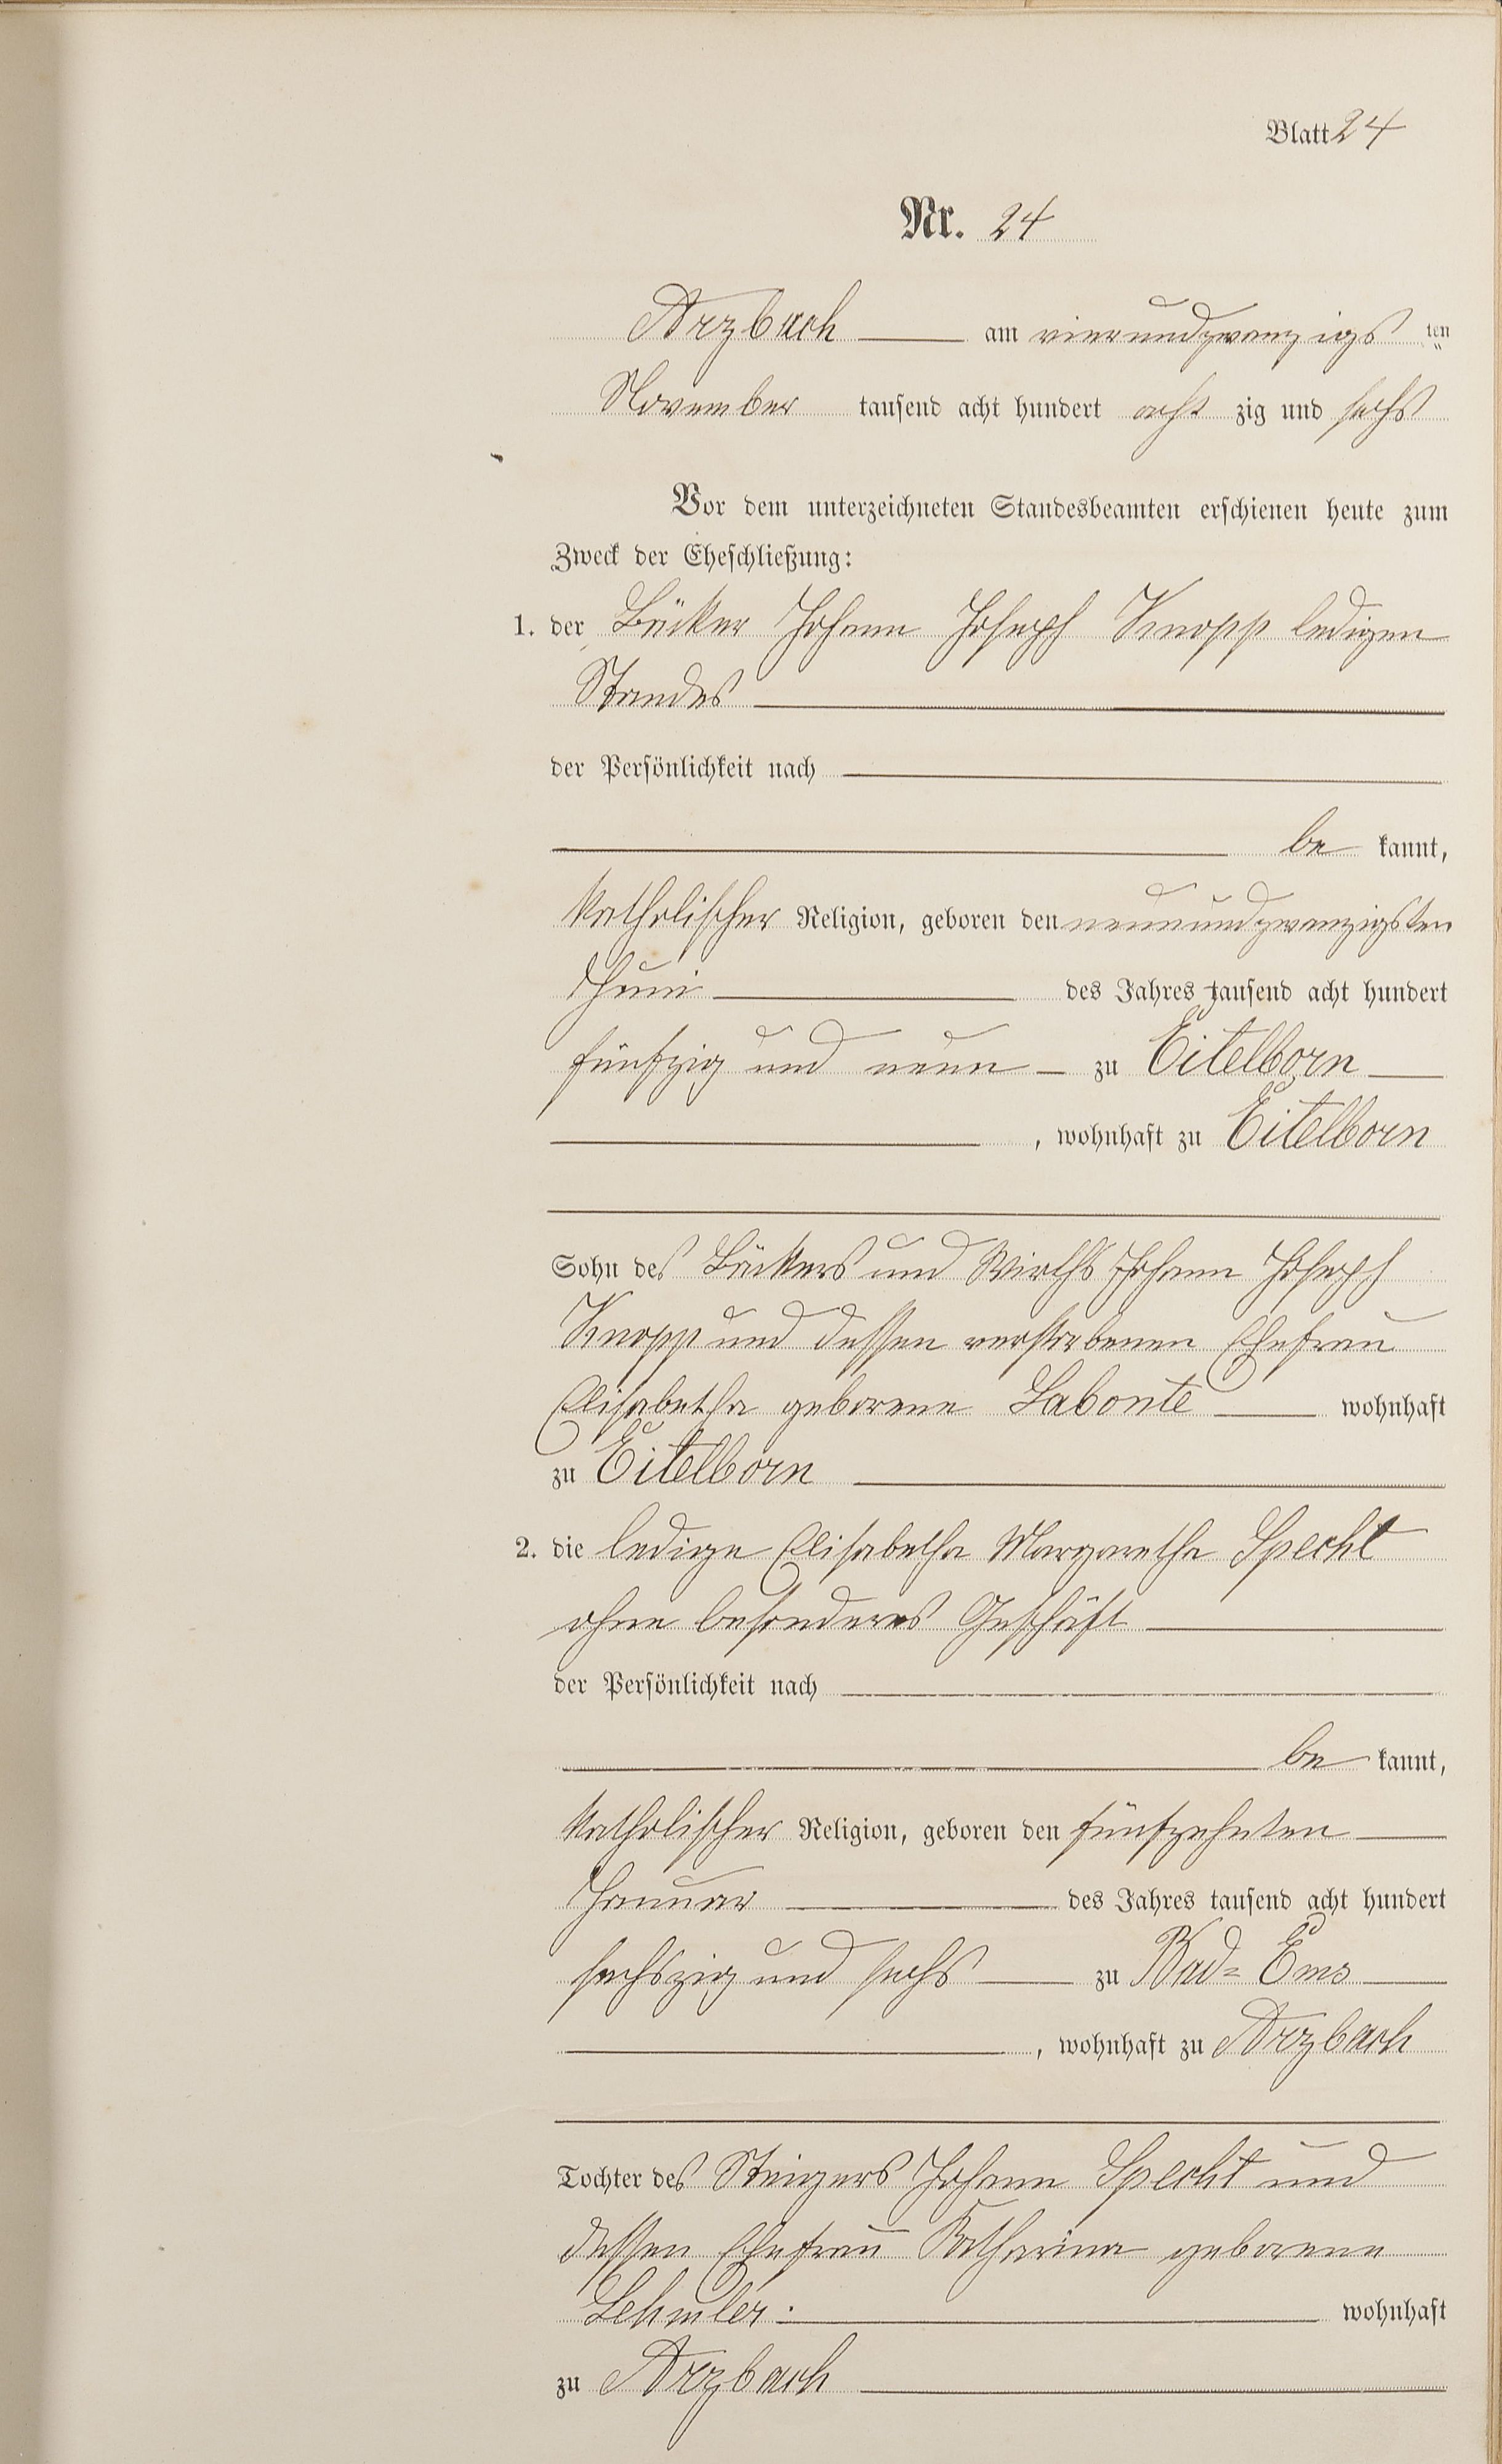 Blatt 24
Nr. 24
Arzbach am vierundzwanzigs ten
November tausend acht hundert acht zig und sechs
Vor dem unterzeichneten Standesbeamten erschienen heute zum
Zweck der Eheschließung:
1. der Bäcker Johann Joseph Knopp ledigen
Standes
der Persönlichkeit nach
be kannt,
katholischer Religion, geboren den neunundzwanzigsten
Juni des Jahres tausend acht hundert
fünfzig und neun zu Eitelborn
, wohnhaft zu Eitelborn
Sohn des Bäckers und Wirths Johann Joseph
Knopp und dessen verstorbenen Ehefrau
Elisabetha geborene Labonte wohnhaft
zu Eitelborn
2. die ledige Elisabetha Margaretha Specht
ohne besonderes Geschäft
der Persönlichkeit nach
be kannt,
katholischer Religion, geboren den fünfzehnten
Januar des Jahres tausend acht hundert
sechszig und sechs zu Bad=Ems
, wohnhaft zu Arzbach
Tochter des Steigers Johann Specht und
dessen Ehefrau Katharina geborene
Lehmler. wohnhaft
zu Arzbach